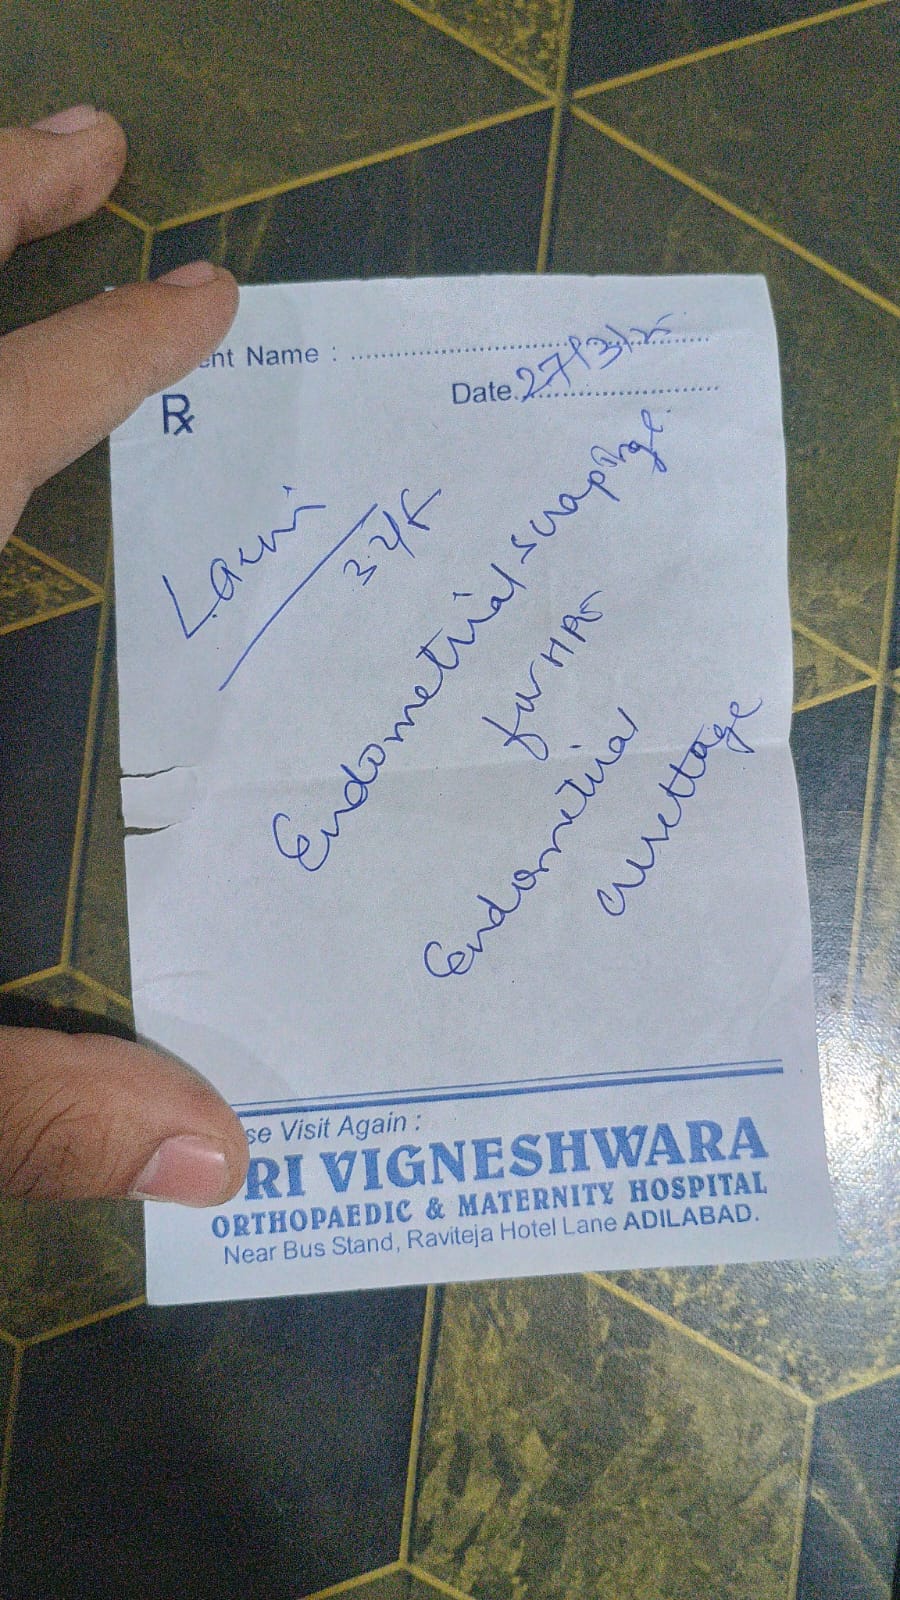 ent Name :
Date 27/3/25
Rx
Laxmi
32/F
Endometrial scrapings
for HPE
Endometrial
curettage
se Visit Again :
RI VIGNESHWARA
ORTHOPAEDIC & MATERNITY HOSPITAL
Near Bus Stand, Raviteja Hotel Lane ADILABAD.